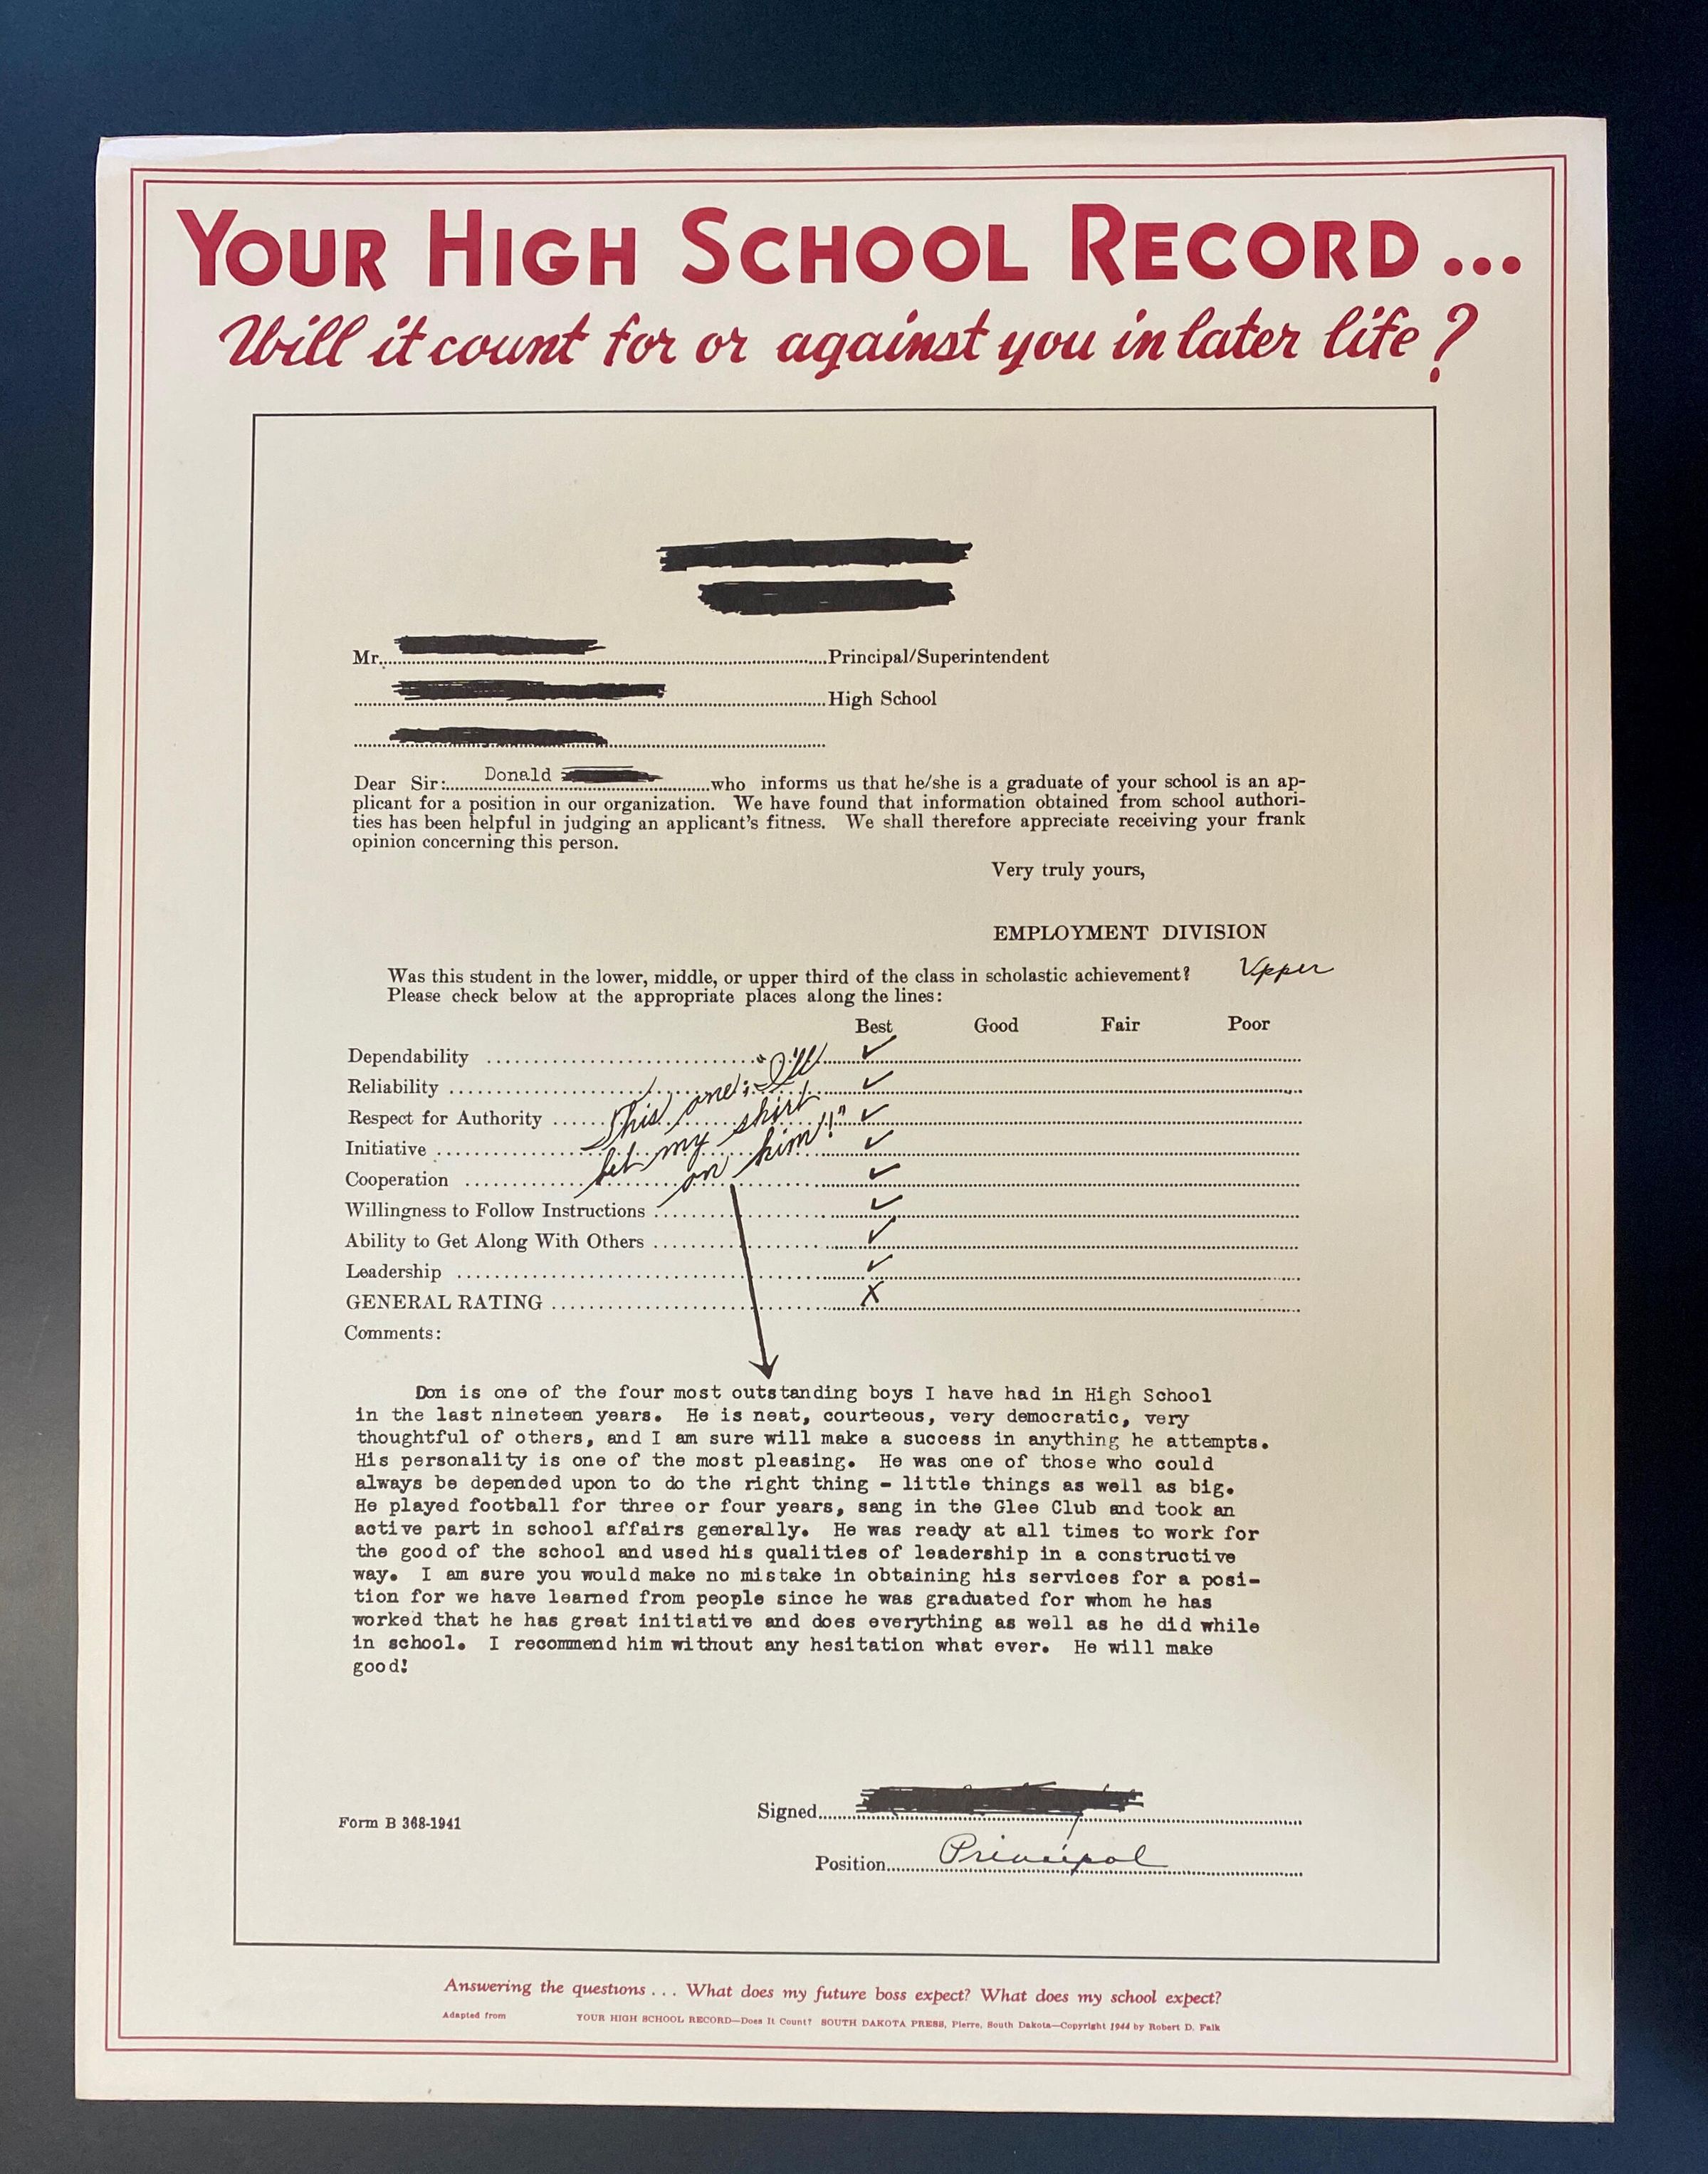 YOUR HIGH SCHOOL RECORD...
Will it count for or against you in later life?
Mr. Principal/Superintendent
High School
Dear Sir: Donald who informs us that he/she is a graduate of your school is an ap-
plicant for a position in our organization. We have found that information obtained from school authori-
ties has been helpful in judging an applicant's fitness. We shall therefore appreciate receiving your frank
opinion concerning this person.
Very truly yours,
EMPLOYMENT DIVISION
Was this student in the lower, middle, or upper third of the class in scholastic achievement? Upper
Please check below at the appropriate places along the lines:
Best Good Fair Poor
Dependability ✓
Reliability ✓
Respect for Authority ✓
Initiative ✓
Cooperation ✓
Willingness to Follow Instructions ✓
Ability to Get Along With Others ✓
Leadership ✓
GENERAL RATING X
This one; "I'll
bet my shirt
on him!!"
Comments:
Don is one of the four most outstanding boys I have had in High School
in the last nineteen years. He is neat, courteous, very democratic, very
thoughtful of others, and I am sure will make a success in anything he attempts.
His personality is one of the most pleasing. He was one of those who could
always be depended upon to do the right thing - little things as well as big.
He played football for three or four years, sang in the Glee Club and took an
active part in school affairs generally. He was ready at all times to work for
the good of the school and used his qualities of leadership in a constructive
way. I am sure you would make no mistake in obtaining his services for a posi-
tion for we have learned from people since he was graduated for whom he has
worked that he has great initiative and does everything as well as he did while
in school. I recommend him without any hesitation what ever. He will make
good!
Signed
Form B 368-1941
Position Principal
Answering the questions... What does my future boss expect? What does my school expect?
Adapted from YOUR HIGH SCHOOL RECORD—Does It Count? SOUTH DAKOTA PRESS, Pierre, South Dakota—Copyright 1944 by Robert D. Falk